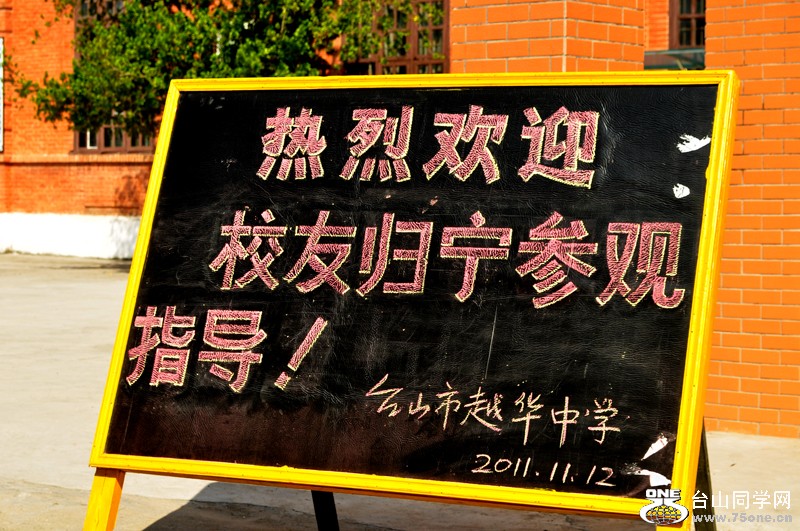 热烈欢迎
校友归宁参观
指导！
台山市越华中学
2011.11.12
ONE
台山同学网
www.75one.cn